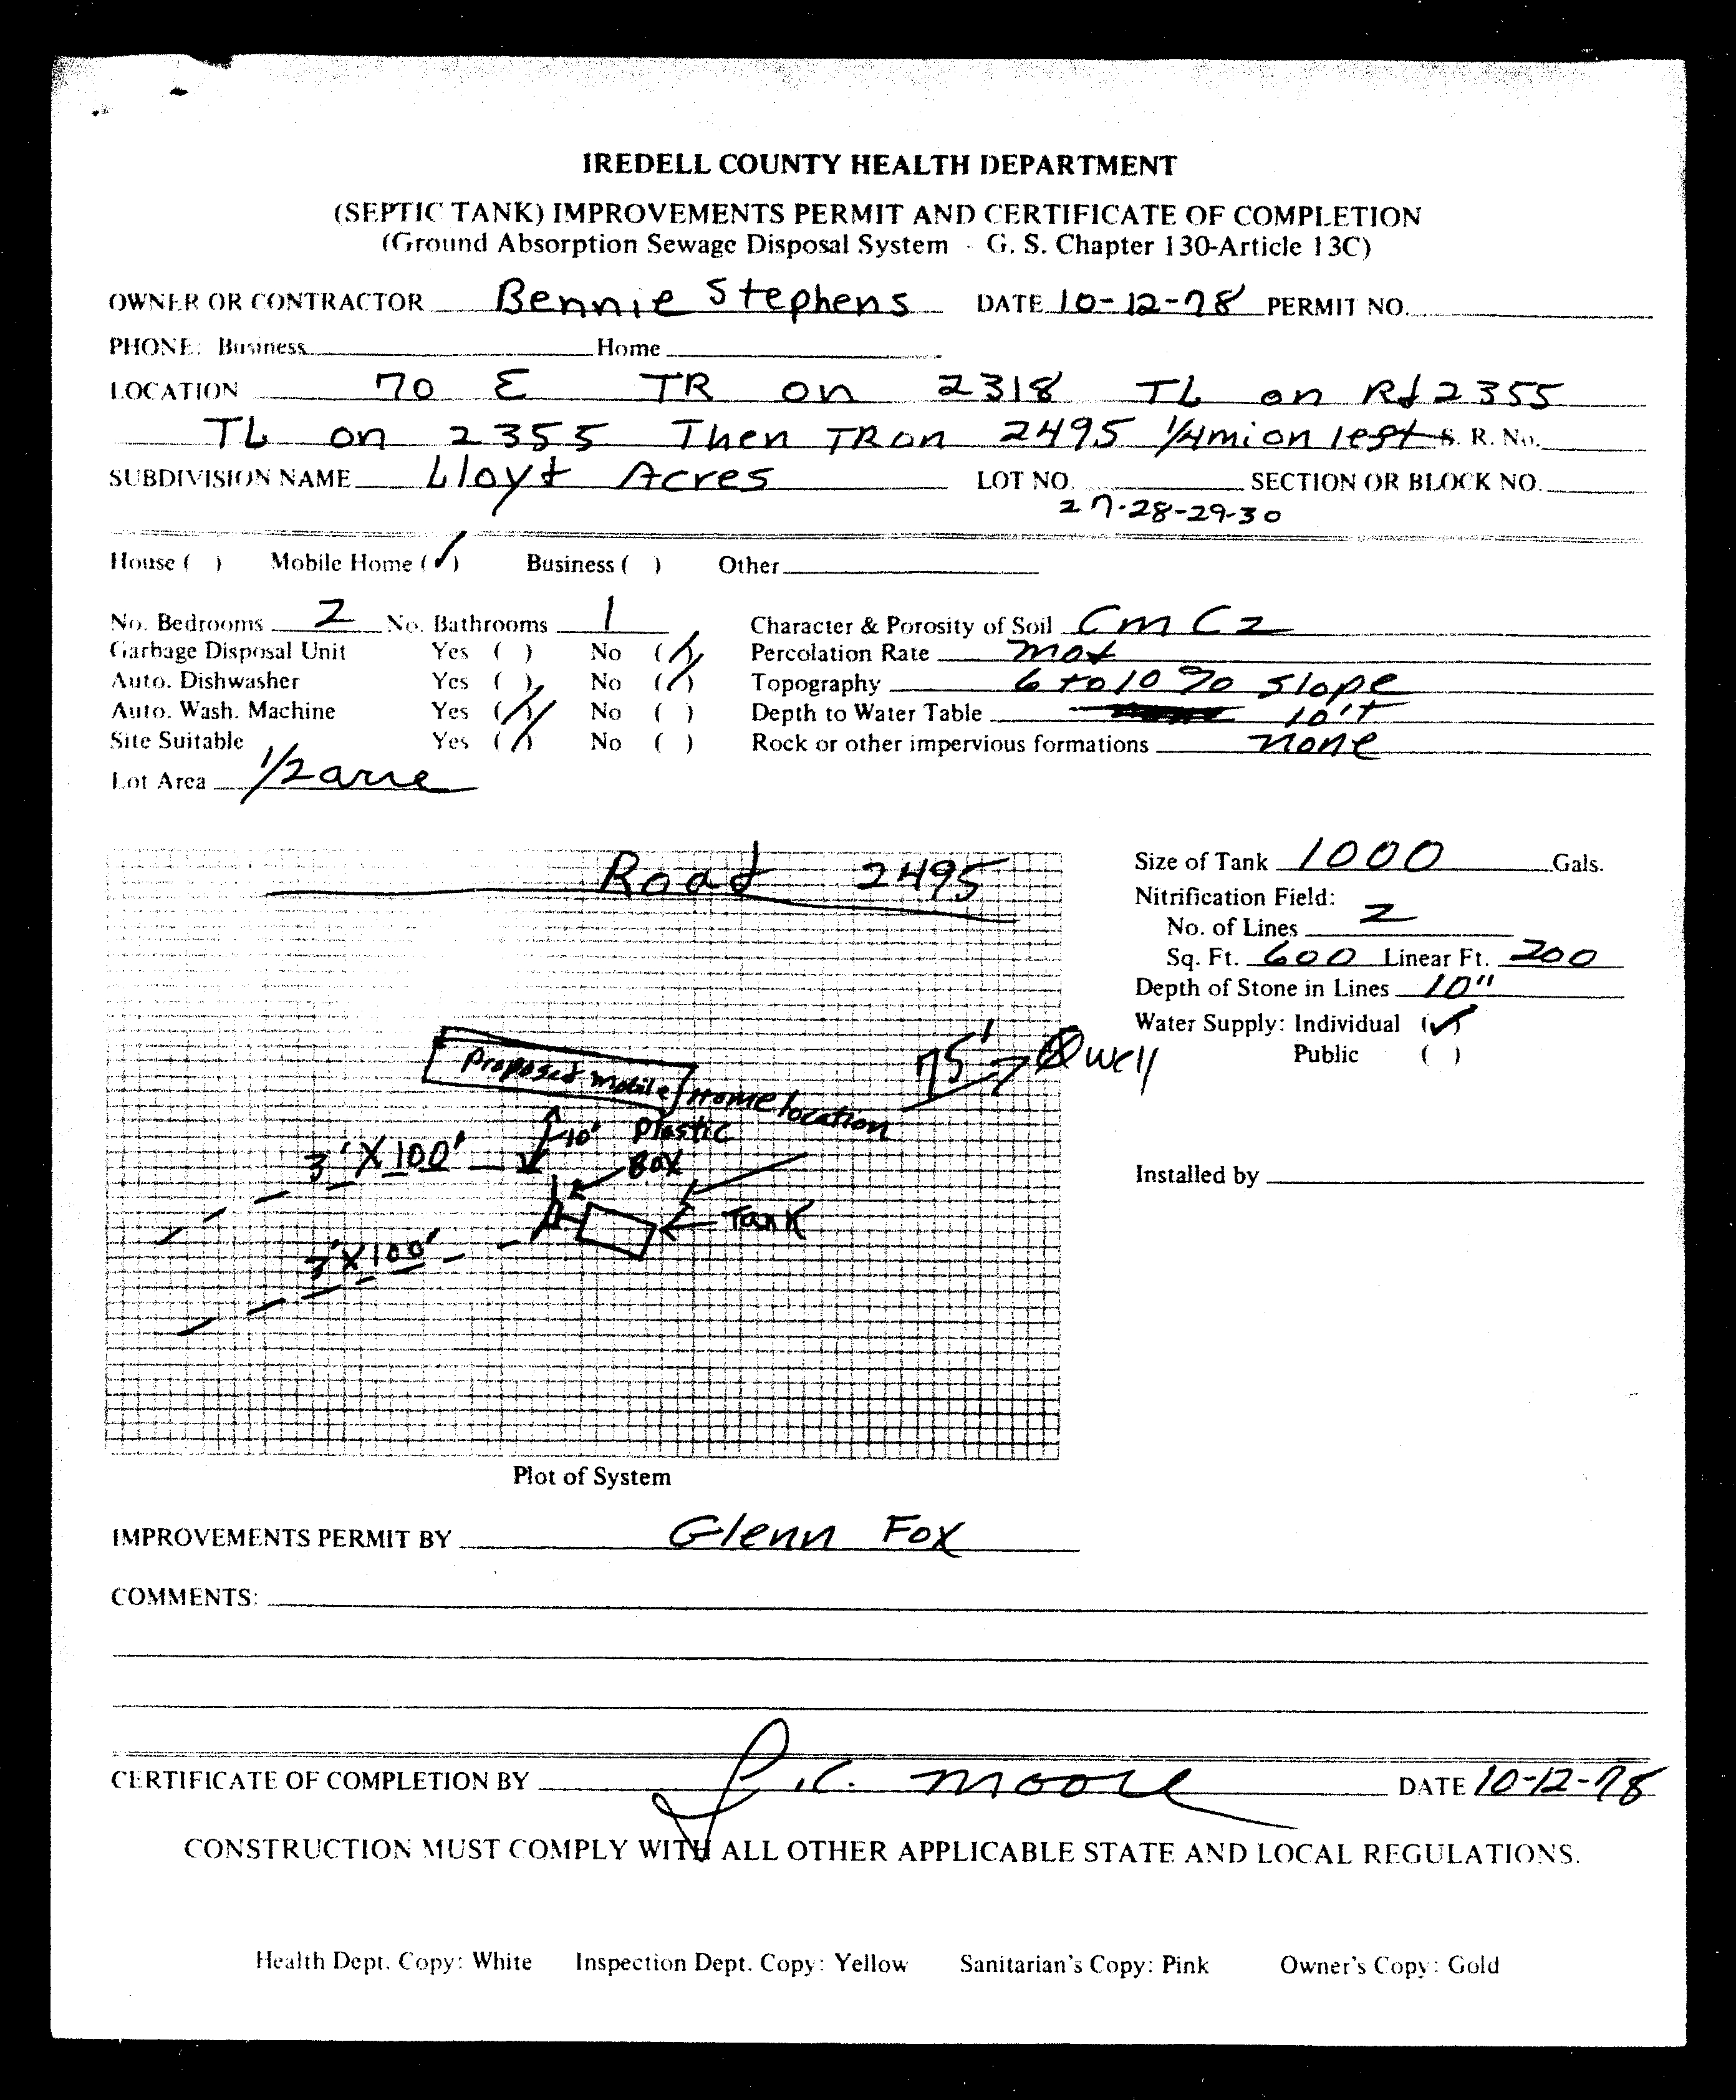 IREDELL COUNTY HEALTH DEPARTMENT
(SEPTIC TANK) IMPROVEMENTS PERMIT AND CERTIFICATE OF COMPLETION
(Ground Absorption Sewage Disposal System - G. S. Chapter 130-Article 13C)
OWNER OR CONTRACTOR Bennie Stephens DATE 10-12-78 PERMIT NO.
PHONE: Business Home
LOCATION 70 E TR on 2318 TL on Rd 2355
TL on 2355 Then TR on 2495 1/4 mi on left S. R. No.
SUBDIVISION NAME Lloyd Acres LOT NO. SECTION OR BLOCK NO.
27-28-29-30
House ( ) Mobile Home (✓) Business ( ) Other
No. Bedrooms 2 No. Bathrooms 1 Character & Porosity of Soil CmC2
Garbage Disposal Unit Yes ( ) No (✓) Percolation Rate mod
Auto. Dishwasher Yes ( ) No (✓) Topography 6 to 10 % slope
Auto. Wash. Machine Yes (✓) No ( ) Depth to Water Table 10't
Site Suitable Yes (✓) No ( ) Rock or other impervious formations none
Lot Area 1/2 acre
Road 2495
Size of Tank 1000 Gals.
Nitrification Field:
No. of Lines 2
Sq. Ft. 600 Linear Ft. 200
Depth of Stone in Lines 10"
Water Supply: Individual (✓)
Public ( )
Proposed mobile Home location
75' well
10' Plastic
Box
3' X 100'
Tank
3' X 100'
Installed by
Plot of System
IMPROVEMENTS PERMIT BY Glenn Fox
COMMENTS:
CERTIFICATE OF COMPLETION BY J.C. Moore DATE 10-12-78
CONSTRUCTION MUST COMPLY WITH ALL OTHER APPLICABLE STATE AND LOCAL REGULATIONS.
Health Dept. Copy: White Inspection Dept. Copy: Yellow Sanitarian's Copy: Pink Owner's Copy: Gold